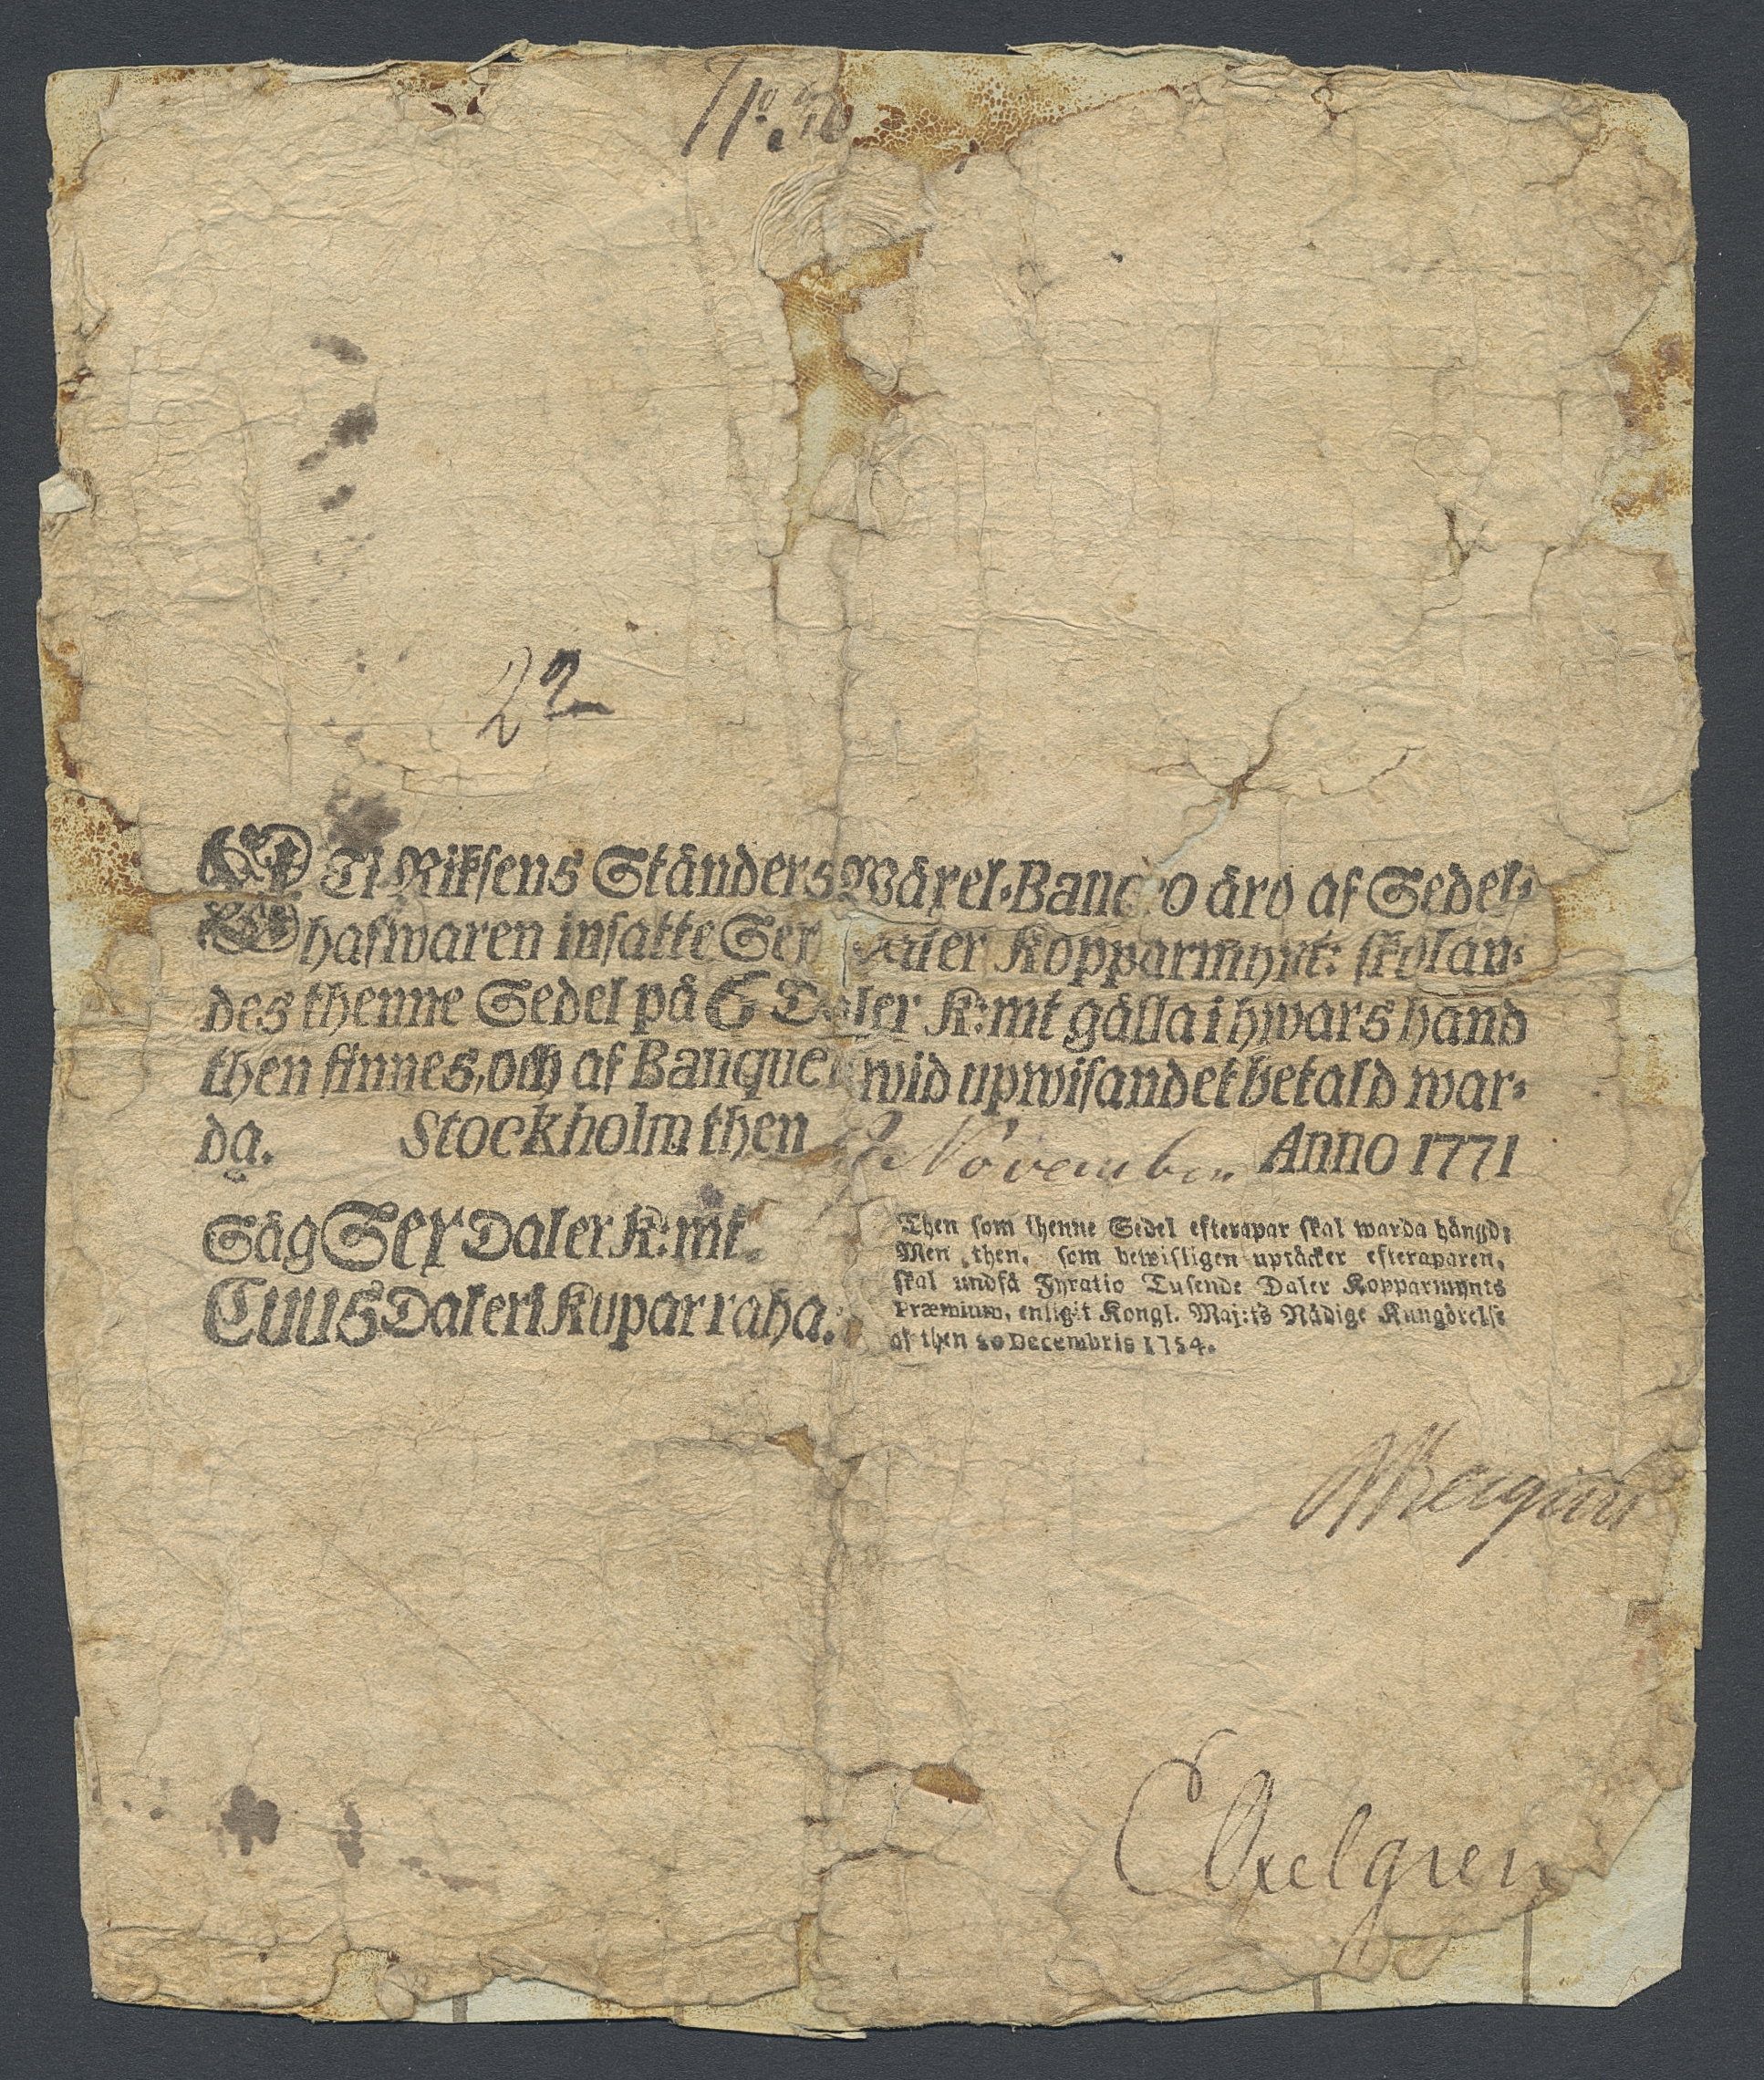 N:o
22
Ti Riksens Ständers Wäxel-Banco äro af Sedel-
hafwaren insatte Sex Daler Kopparmynt: skolan-
des thenne Sedel på 6 Daler K:mt gälla i hwars hand
then finnes, och af Banquen wid upwisandet betald war-
da. Stockholm then November Anno 1771
Säg Sex Daler K:mt.
Cuus Daleri Kuparraha.
Then som thenne Sedel efterapar skal warda hängd;
Men then, som bewisligen uptäcker efteraparen,
skal undfå Fyratio Tusende Daler Kopparmynts
Præmium, enligit Kongl. Maj:ts Nådige Kungörelse
af then 20 Decembris 1754.
C Axelgren